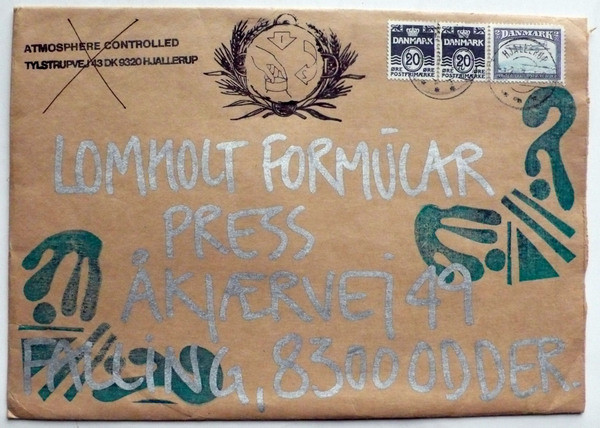 ATMOSPHERE CONTROLLED
TYLSTRUPVEJ 43 DK 9320 HJALLERUP
DANMARK
20
ØRE
POSTFRIMÆRKE
DANMARK
20
ØRE
POSTFRIMÆRKE
DANMARK
HJALLERUP
LOMHOLT FORMÚLAR
PRESS
ÅKJÆRVEJ 49
FALLING, 8300 ODDER.